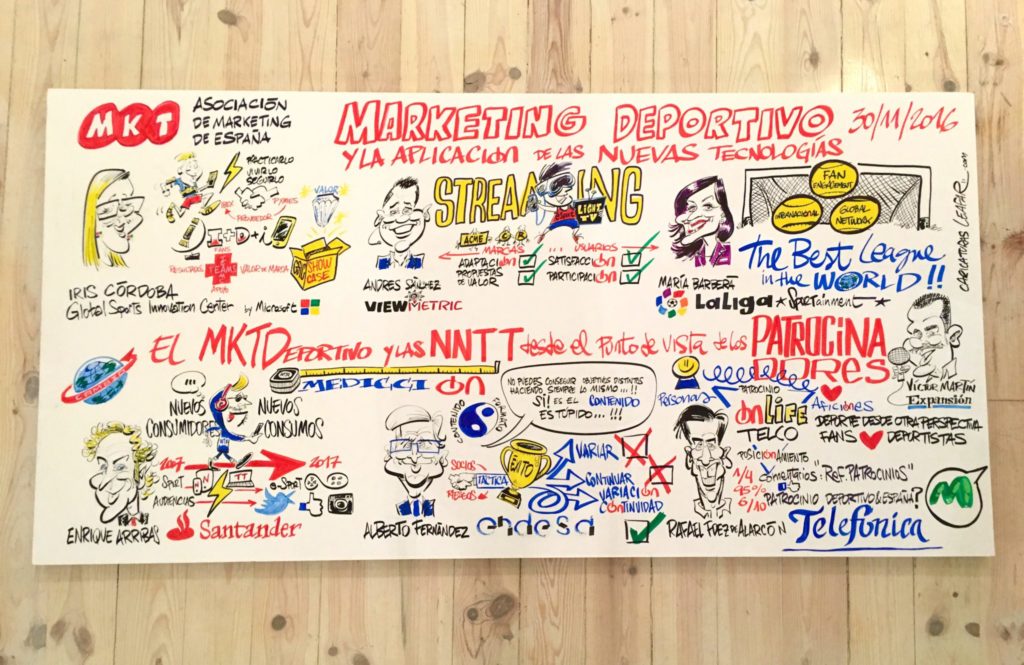 MKT
ASOCIACIÓN
DE MARKETING
DE ESPAÑA
MARKETING DEPORTIVO 30/11/2016
Y LA APLICACIÓN DE LAS NUEVAS TECNOLOGÍAS
PRACTICARLO
VIVIRLO
SEGUIRLO
PYMES
PROVEEDOR
VALOR
I+D+i
FANS
RESULTADOS TEAMS VALOR DE MARCA
APOYO
SHOW
CASE
IRIS CÓRDOBA
Global Sports Innovation Center by Microsoft
STREAMING
LIGHT
TV
ACME
MARCAS
USUARIOS
ADAPTACIÓN
PROPUESTAS
DE VALOR
SATISFACCIÓN
PARTICIPACIÓN
ANDRES SÁNCHEZ
VIEWMETRIC
FAN
ENGAGEMENT
URBANACIONAL
GLOBAL
NETWORK
The Best League
in the WORLD!!
MARÍA BARBERÁ
LaLiga ★ Sportainment ★
CARICATURAS LEAFAR.com
EL MKTDEPORTIVO Y LAS NNTT desde el Punto de vista de los PATROCINA
DORES
VÍCTOR MARTÍN
Expansión
CEMTEREX
NUEVOS
CONSUMIDORES
NUEVOS
CONSUMOS
2007 2017
SPORT
e-SPORT
AUDIENCIAS
ENRIQUE ARRIBAS
Santander
MEDICCIÓN
NO PUEDES CONSEGUIR OBJETIVOS DISTINTOS
HACIENDO SIEMPRE LO MISMO...!!
SI! ES EL CONTENIDO
ESTÚPIDO...!!!
CONTENIDO
FORMATO
SOCIOS
TÁCTICA
MEDIOS
ÉXITO
VARIAR
CONTINUAR
VARIACIÓN
CONTINUIDAD
ALBERTO FERNÁNDEZ
endesa
PERSONAS
PATROCINIO
ONLIFE
TELCO
AFICIONES
DEPORTE DESDE OTRA PERSPECTIVA
FANS ❤ DEPORTISTAS
POSICIONAMIENTO
1/4
95%
6/10
COMENTARIOS: "REF. PATROCINIOS"
"PATROCINIO DEPORTIVO & ESPAÑA?
M
RAFAEL FDEZ DE ALARCÓN
Telefónica